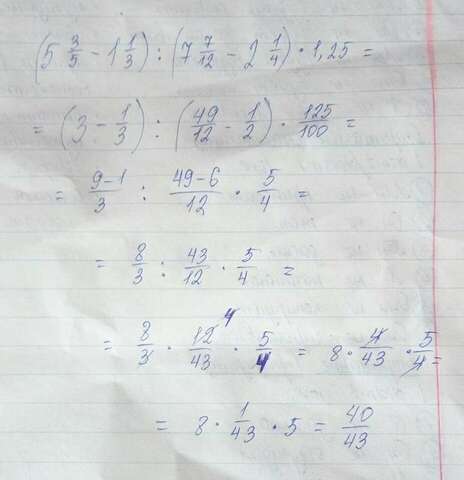 (5 3/5 - 1 1/3) : (7 7/12 - 2 1/4) · 1,25 =
= (3 - 1/3) : (49/12 - 1/2) · 125/100 =
= 9-1/3 : 49-6/12 · 5/4 =
= 8/3 : 43/12 · 5/4 =
= 8/3 · 12/43 4 · 5/4 = 8 · 4/43 · 5/4 =
= 8 · 1/43 · 5 = 40/43